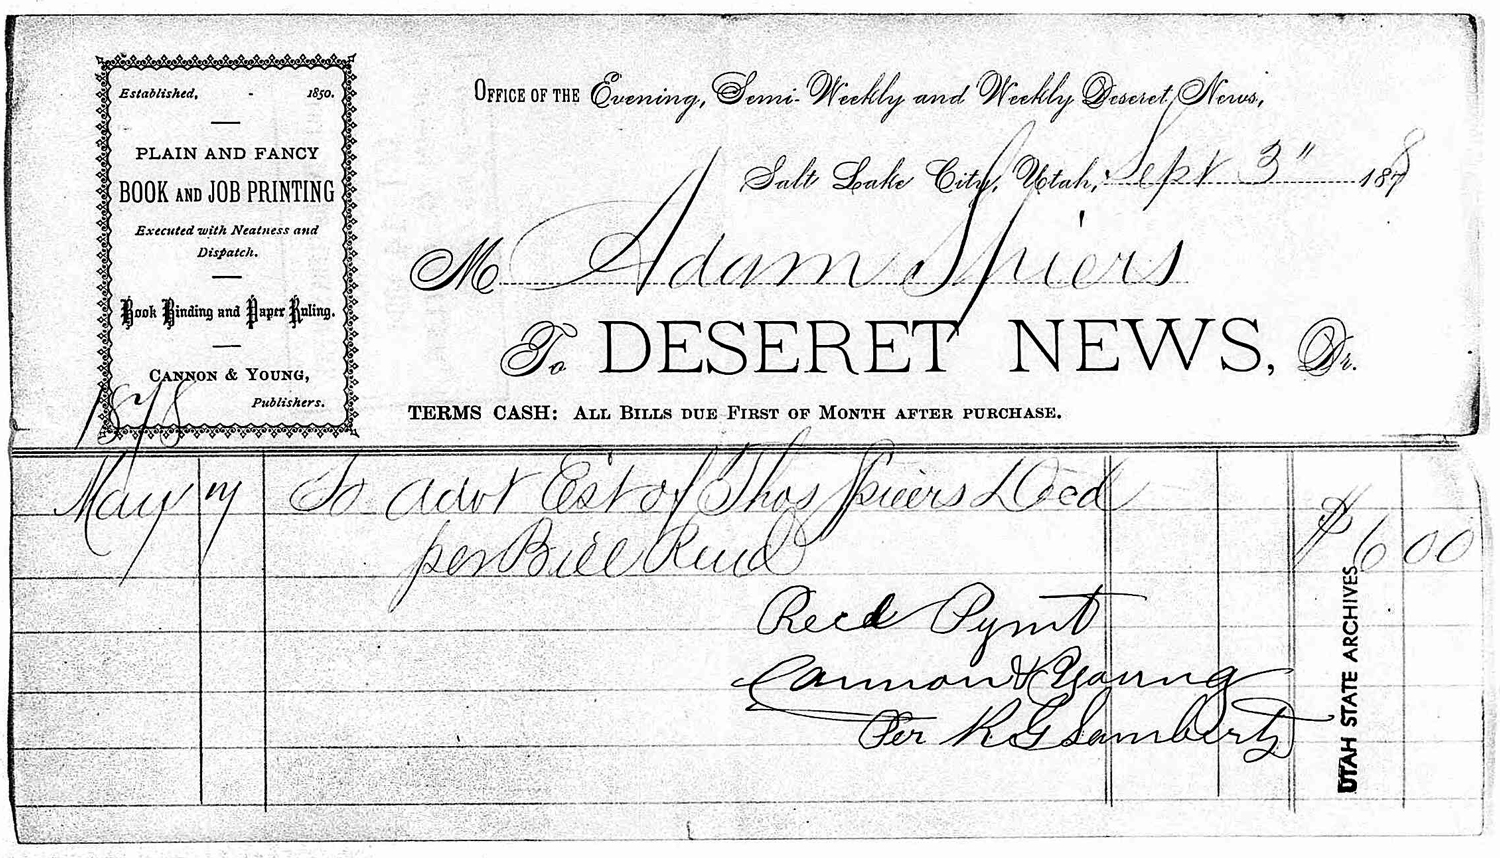 Established, - 1850.
PLAIN AND FANCY
BOOK AND JOB PRINTING
Executed with Neatness and
Dispatch.
Book Binding and Paper Ruling.
CANNON & YOUNG,
Publishers.
OFFICE OF THE Evening, Semi-Weekly and Weekly Deseret News,
Salt Lake City, Utah, Sept 3" 1878
M Adam Spiers
To DESERET NEWS, Dr.
TERMS CASH: ALL BILLS DUE FIRST OF MONTH AFTER PURCHASE.
1878
May 7 To Advt Est of Thos Spiers Decd
per Bill Rend $6 00
Recd Pymt
Cannon & Young
Per R G Lambert
UTAH STATE ARCHIVES